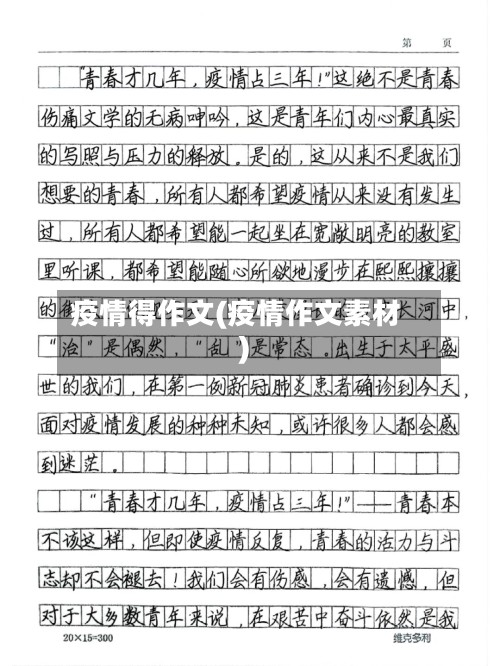 第 页
“青春才几年，疫情占三年！”这绝不是青春
伤痛文学的无病呻吟，这是青年们内心最真实
的写照与压力的释放。是的，这从来不是我们
想要的青春，所有人都希望疫情从来没有发生
过，所有人都希望能一起坐在宽敞明亮的教室
里听课，都希望能随心所欲地漫步在熙熙攘攘
的
长河中，
疫情得作文(疫情作文素材
)
“治”是偶然，“乱”是常态。出生于太平盛
世的我们，在第一例新冠肺炎患者确诊到今天，
面对疫情发展的种种未知，或许很多人都会感
到迷茫。
“青春才几年，疫情占三年！”——青春本
不该这样，但即使疫情反复，青春的活力与斗
志却不会褪去！我们会有伤感，会有遗憾，但
对于大多数青年来说，在艰苦中奋斗依然是我
20×15=300 维克多利